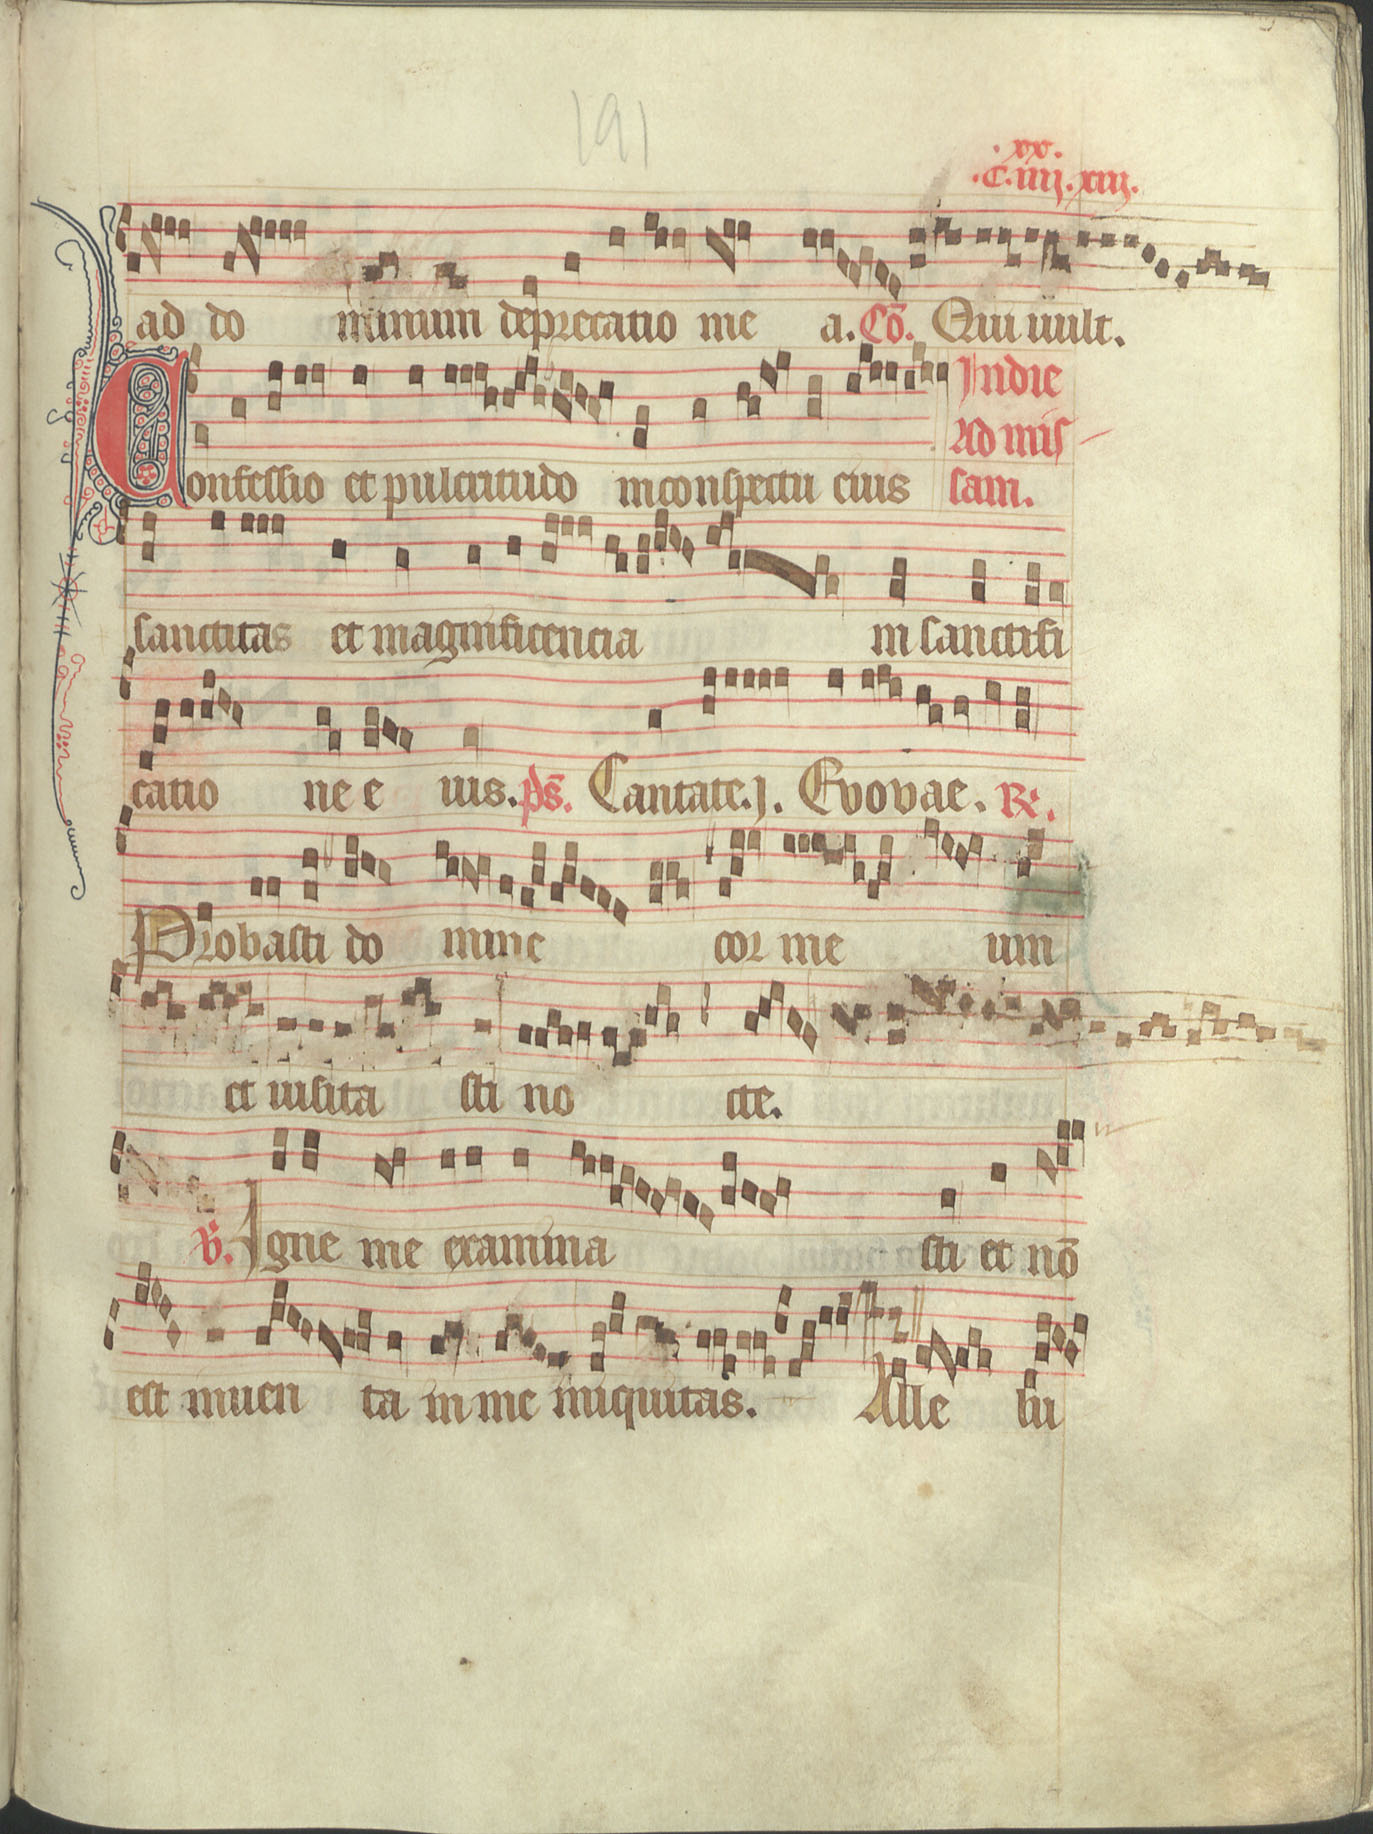 191
.xx.
.C.iiij.xiij.
ad do minum deprecatio me a. Cō. Qui uult.
In die
Ad mis
Confessio et pulcritudo in conspectu eius sam.
sanctitas et magnificencia in sanctifi
catio ne e ius. ps. Cantate.j. Evovae. R.
Probasti do mine cor me um
et uisita sti no cte.
V. Igne me examina sti et nō
est inuen ta in me iniquitas. Alle lu